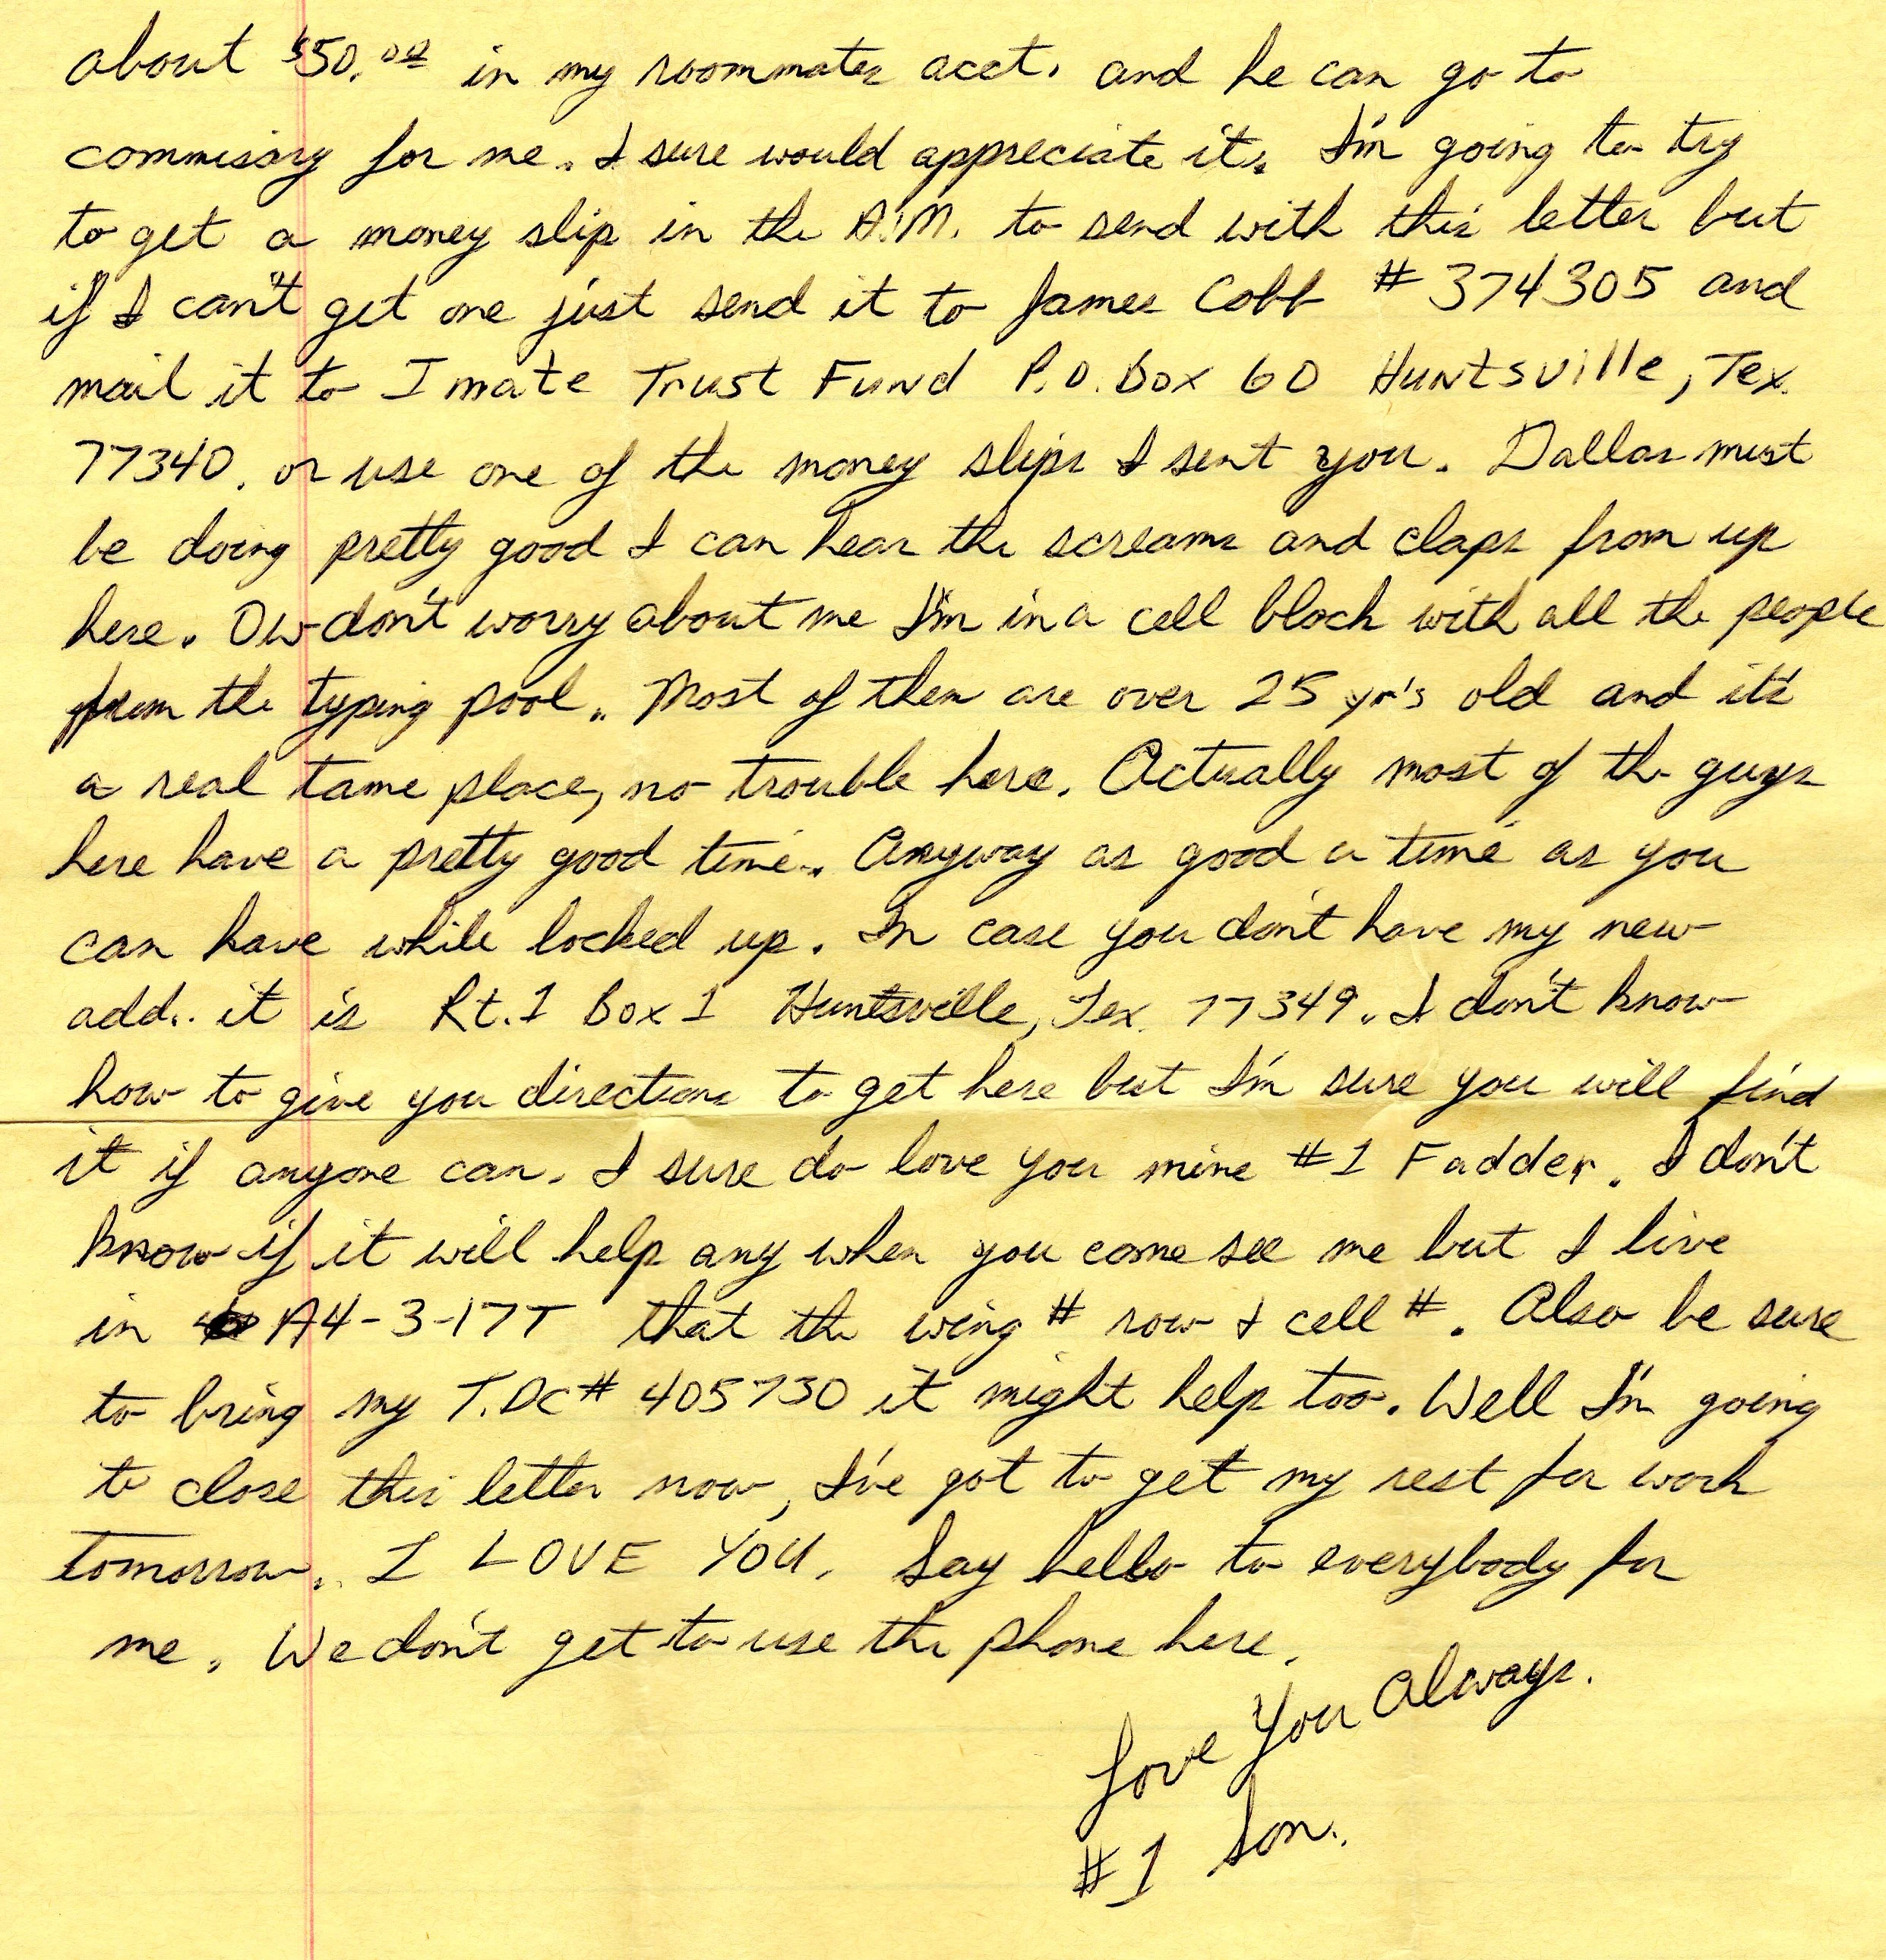 about $50.00 in my roommates acct. and he can go to
commisary for me. I sure would appreciate it. I'm going to try
to get a money slip in the A.M. to send with this letter but
if I can't get one just send it to James Cobb # 374305 and
mail it to Imate Trust Fund P.O. Box 60 Huntsville, Tex.
77340. or use one of the money slips I sent you. Dallas must
be doing pretty good I can hear the screams and claps from up
here. Ow don't worry about me I'm in a cell block with all the people
from the typing pool. Most of them are over 25 yr's old and it's
a real tame place, no trouble here. Actually most of the guys
here have a pretty good time. Anyway as good a time as you
can have while locked up. In case you don't have my new
add. it is Rt. 1 Box 1 Huntsville, Tex. 77349. I don't know
how to give you directions to get here but I'm sure you will find
it if anyone can. I sure do love you mine #1 Fadder. I don't
know if it will help any when you come see me but I live
in A4-3-17T that the wing # row & cell #. Also be sure
to bring my T.DC# 405730 it might help too. Well I'm going
to close this letter now, I've got to get my rest for work
tomorrow. I LOVE YOU. Say hello to everybody for
me. We don't get to use the phone here.
Love You Always.
#1 Son.